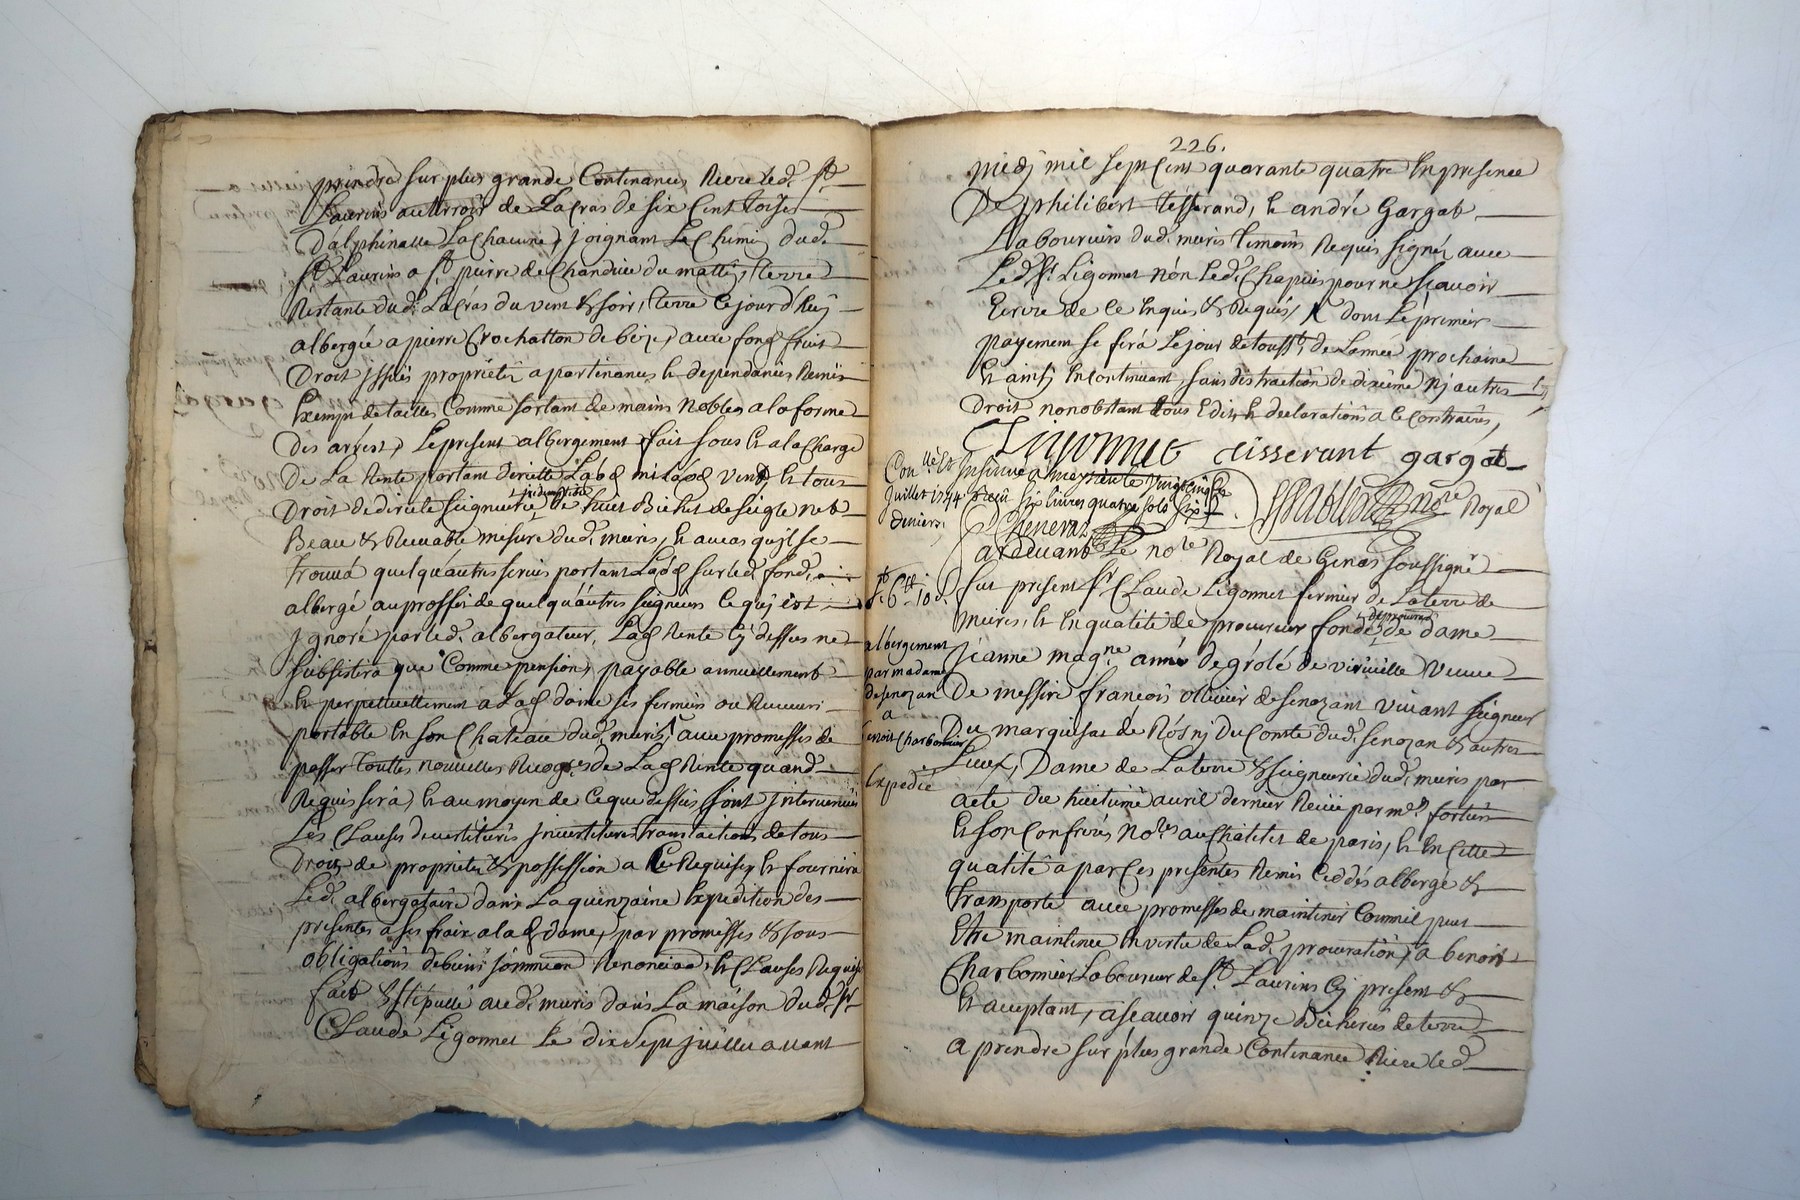 prendre sur plus grande Continance, Riere led. St.
Laurins au terroir de La Cras de six Cent toises
Dalphinalle La Chacune, Joignant Le Chemi dud.
St. Laurins a St. pierre de Chandieu du matti, terre
Restante dud. La Cras du vent & soir, terre Cejourd'huy
albergée a pierre Crochatton de bize, avec fond fruit
Droit Issuës proprietés apartinances & dependances Remis
Exempt de tailles Comme sortant de mains Nobles a la forme
Des arrest, Le present albergement fait sous & a la Charge
De La Rente portant directe Labd milabd vend & tous
Droit de directe seigneurie de huit Bichet de seigle net
Beau & Recevable mesure dud. muris, & au cas qu'il se
trouva quelqu'autre servis portant Lad sur led. fond
albergé au proffit de quelqu'autres seigneurs Ce qui est
Ignoré par led. albergateur, Lad Rente Cy dessus ne
subsistera que Comme pension, payable annuellement
& perpetuellement a Lad dame ses fermiers ou Receveurs
portable En son Chateau dud. muris, avec promesses de
passer touttes nouvelles Recog.ces de Lad Rente quand
Requis sera, & au moyen de Ce que dessus sont Intervenues
Les Clauses devestitures Investitures translation de tous
Droits de propriete & possession a Ce Requises & fournira
Led. albergataire dans La quinzaine Expedition des
presentes a ses frais a lad dame, par promesses & sous
obligations de biens soumission Renonciaon & Clauses Requises
fait & stipullé aud. muris dans La maison dud. Sr.
Claude Ligonnet Le dix sept juillet avant
226.
midj mil sept Cent quarante quatre En presence
De philibert tisserand, & andré Gargat
Laboureurs dud. muris temoins Requis signés avec
Led. Sr. Ligonnet Non Led. Chapuis pour ne sçavoir
Ecrire de Ce Enquis & Requis, dont Le premier
payement se fera Le jour de touss.t de Lannée prochaine
& ainsj En Continuant, sans distraction de dixieme nj autres
Droit nonobstant tous Edits & declarations a Ce Contraires,
Ligonnet tisserant gargat
Con.llé & Insinué a meyzieu le vingt cinq
Juillet 1744 Reçu six livres quatre sols six
deniers.
Royal
Pardevant Le no.re Royal de Genas soussigné
fut present Sr. Claude Ligonnet fermier de La terre de
muris, & En qualité de procureur fondé de dame
albergement
par madame
de senozan
a
benoit Charbonnier
Expedié
Jeanne mag.ne anne de grolé de viriville Veuve
De messire francois ollivier de senozant vivant seigneur
Du marquisat de Rosnj Du Comté dud. senozan & autres
Lieux, Dame de La terre & seigneurie dud. muris par
acte du huitieme avril dernier Reçu par me. fortier
& son Confrere No.res au Chatelet de paris, & En Cette
qualité a par Ces presentes Remis Ceddés albergé &
transporté avec promesses de maintenir Comme il peut
Etre maintenue En vertu de Lad. procuration, a benoit
Charbonnier Laboureur de St. Laurins Cy present &
& acceptant, a sçavoir quinze Bicherées de terre
a prendre sur plus grande Continance Riere led